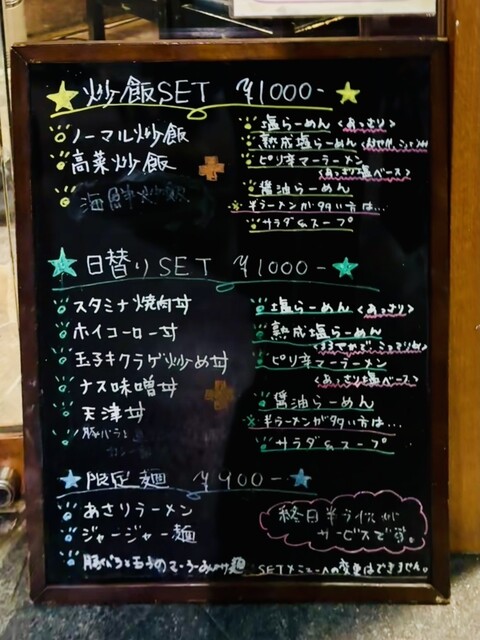 炒飯SET ¥1000-
ノーマル炒飯
高菜炒飯
海鮮炒飯
+
塩らーめん<あっさり>
熟成塩らーめん
ピリ辛マーラーメン
<あっさり塩ベース>
醤油らーめん
※半ラーメンが多い方は…
サラダ&スープ
日替りSET ¥1000-
スタミナ焼肉丼
ホイコーロー丼
玉子キクラゲ炒め丼
ナス味噌丼
天津丼
豚バラと
+
塩らーめん<あっさり>
熟成塩らーめん
<まろやかで、こってり>
ピリ辛マーラーメン
<あっさり塩ベース>
醤油らーめん
※半ラーメンが多い方は…
サラダ&スープ
限定麺 ¥900-
あさりラーメン
ジャージャー麺
豚バラと玉子のマーラーあんかけ麺
終日半ライスが
サービスです。
SETメニューへの変更はできません。